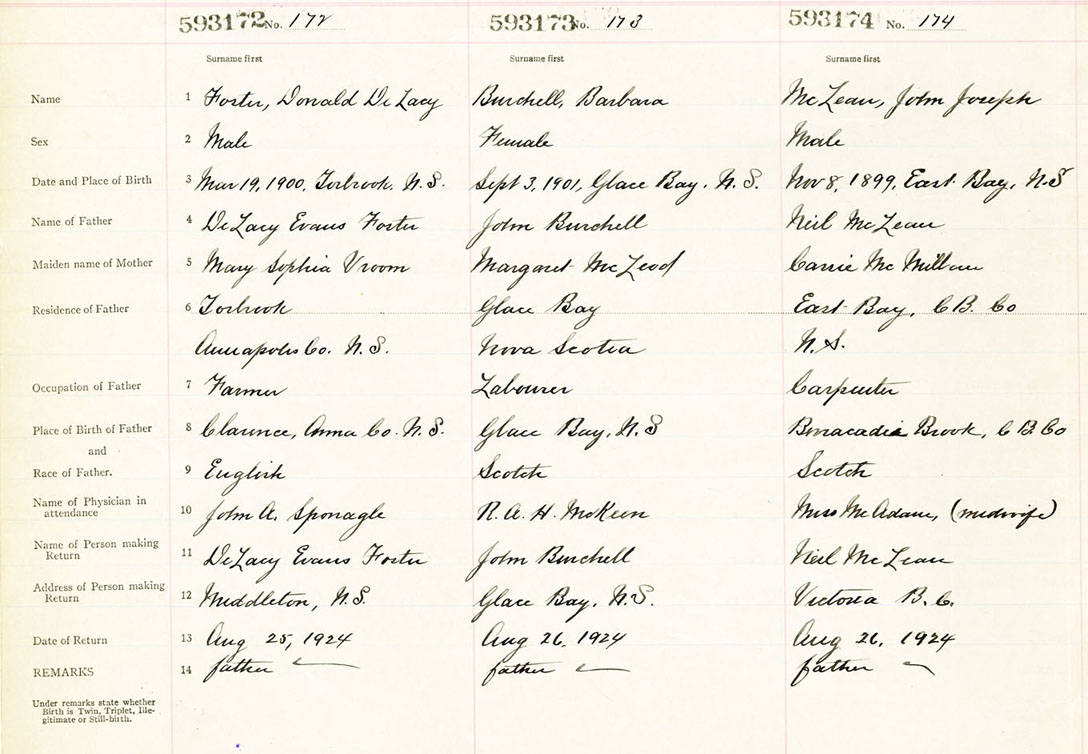 593172 No. 172 593173 No. 173 593174 No. 174
Surname first Surname first Surname first
Name 1 Foster, Donald De Lacy Burchell, Barbara McLean, John Joseph
Sex 2 Male Female Male
Date and Place of Birth 3 Mar 19, 1900, Torbrook, N.S. Sept 3, 1901, Glace Bay, N.S. Nov 8, 1899, East Bay, N.S
Name of Father 4 DeLacy Evans Foster John Burchell Neil McLean
Maiden name of Mother 5 Mary Sophia Vroom Margaret McLeod Carrie McMillan
Residence of Father 6 Torbrook Glace Bay East Bay, C.B. Co
Annapolis Co. N.S. Nova Scotia N.S.
Occupation of Father 7 Farmer Labourer Carpenter
Place of Birth of Father 8 Clarence, Anna Co. N.S. Glace Bay, N.S Benacadie Brook, C.B. Co
and
Race of Father. 9 English Scotch Scotch
Name of Physician in
attendance 10 John A. Sponagle R. A. H. McKeen Miss McAdam, (midwife)
Name of Person making
Return 11 DeLacy Evans Foster John Burchell Neil McLean
Address of Person making
Return 12 Middleton, N.S. Glace Bay, N.S. Victoria B.C.
Date of Return 13 Aug 25, 1924 Aug 26, 1924 Aug 26, 1924
REMARKS 14 father father father
Under remarks state whether
Birth is Twin, Triplet, Ille-
gitimate or Still-birth.